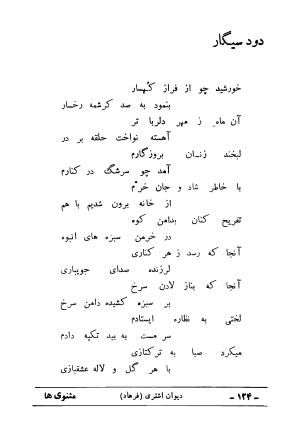 دود سیگار
خورشید چو از فراز کهسار
بنمود به صد کرشمه رخسار
آن ماه ز مهر دلربا تر
آهسته نواخت حلقه بر در
لبخند زنان بروزگارم
آمد چو سرشگ در کنارم
با خاطر شاد و جان خرّم
از خانه برون شدیم با هم
تفریح کنان بدامن کوه
در خرمن سبزه های انبوه
آنجا که رسد ز هر کناری
لرزنده صدای جویباری
آنجا که بناز لادن سرخ
بر سبزه کشیده دامن سرخ
لختی به نظاره ایستادم
سر مست به بید تکیه دادم
میکرد صبا به ترکتازی
با هر گل و لاله عشقبازی
مثنوی ها دیوان اشتری (فرهاد) - ۱۲۴ -